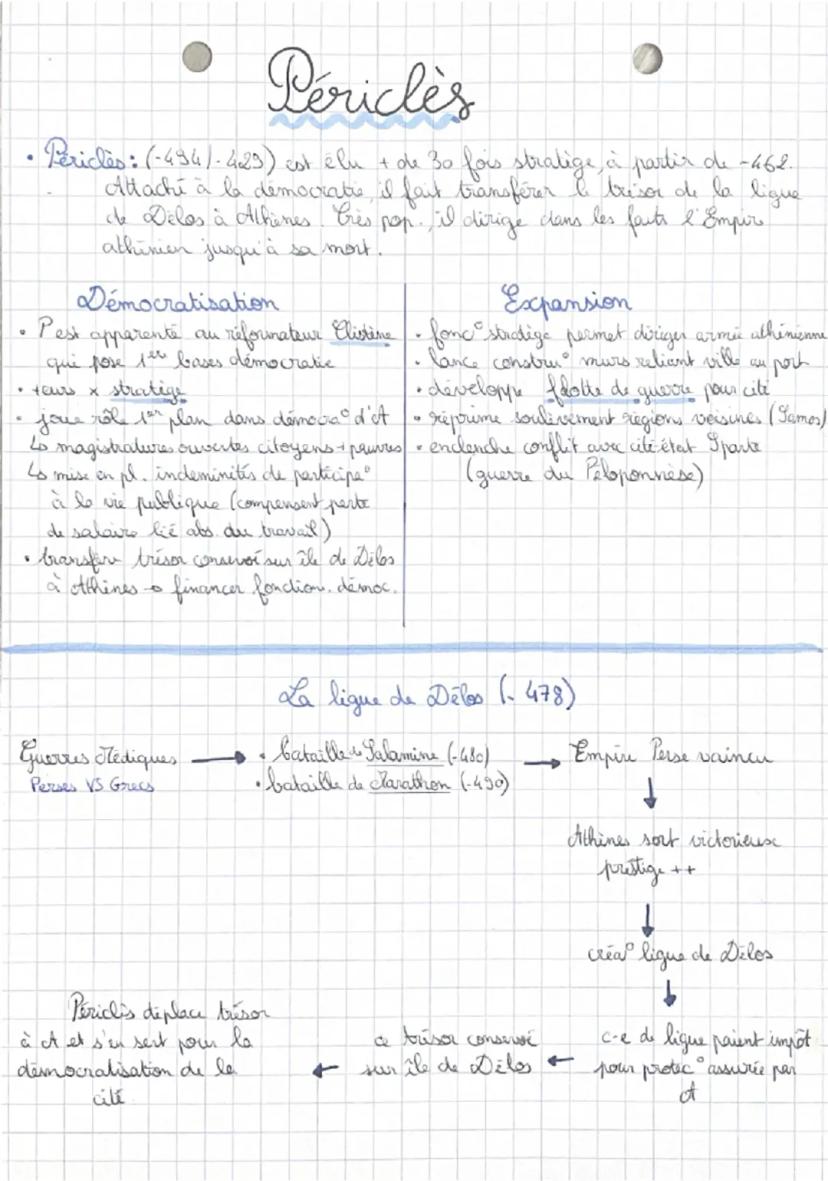 Périclès
• Périclès : (-494/-429) est élu + de 30 fois stratège, à partir de -462.
Attaché à la démocratie, il fait transférer le trésor de la ligue
de Délos à Athènes. Très pop., il dirige dans les faits l'Empire
athénien jusqu'à sa mort.
Démocratisation
• P est apparenté au réformateur Clistène
qui pose 1ères bases démocratie
• +eurs x stratège
• joue rôle 1er plan dans démocra° d'A
↳ magistratures ouvertes citoyens + pauvres
↳ mise en pl. indeminités de participa°
à la vie publique (compensent perte
de salaire lié abs. du travail)
• transfère trésor conservé sur île de Délos
à Athènes → financer fonction. démoc.
Expansion
• fonc° stratège permet diriger armée athénienne
• lance constru° murs reliant ville au port
• développe flotte de guerre pour cité
• réprime soulèvement régions voisines (Samos)
• enclenche conflit avec cité état Sparte
(guerre du Péloponnèse)
La ligue de Délos (-478)
Guerres Médiques → • bataille de Salamine (-480) → Empire Perse vaincu
Perses VS Grecs • bataille de Marathon (-490)
↓
Athènes sort victorieuse
prestige ++
↓
créa° ligue de Délos
↓
c-e de ligue paient impôt
pour protec° assurée par
A
←
ce trésor conservé
sur île de Délos
←
Périclès déplace trésor
à A et s'en sert pour la
démocratisation de la
cité